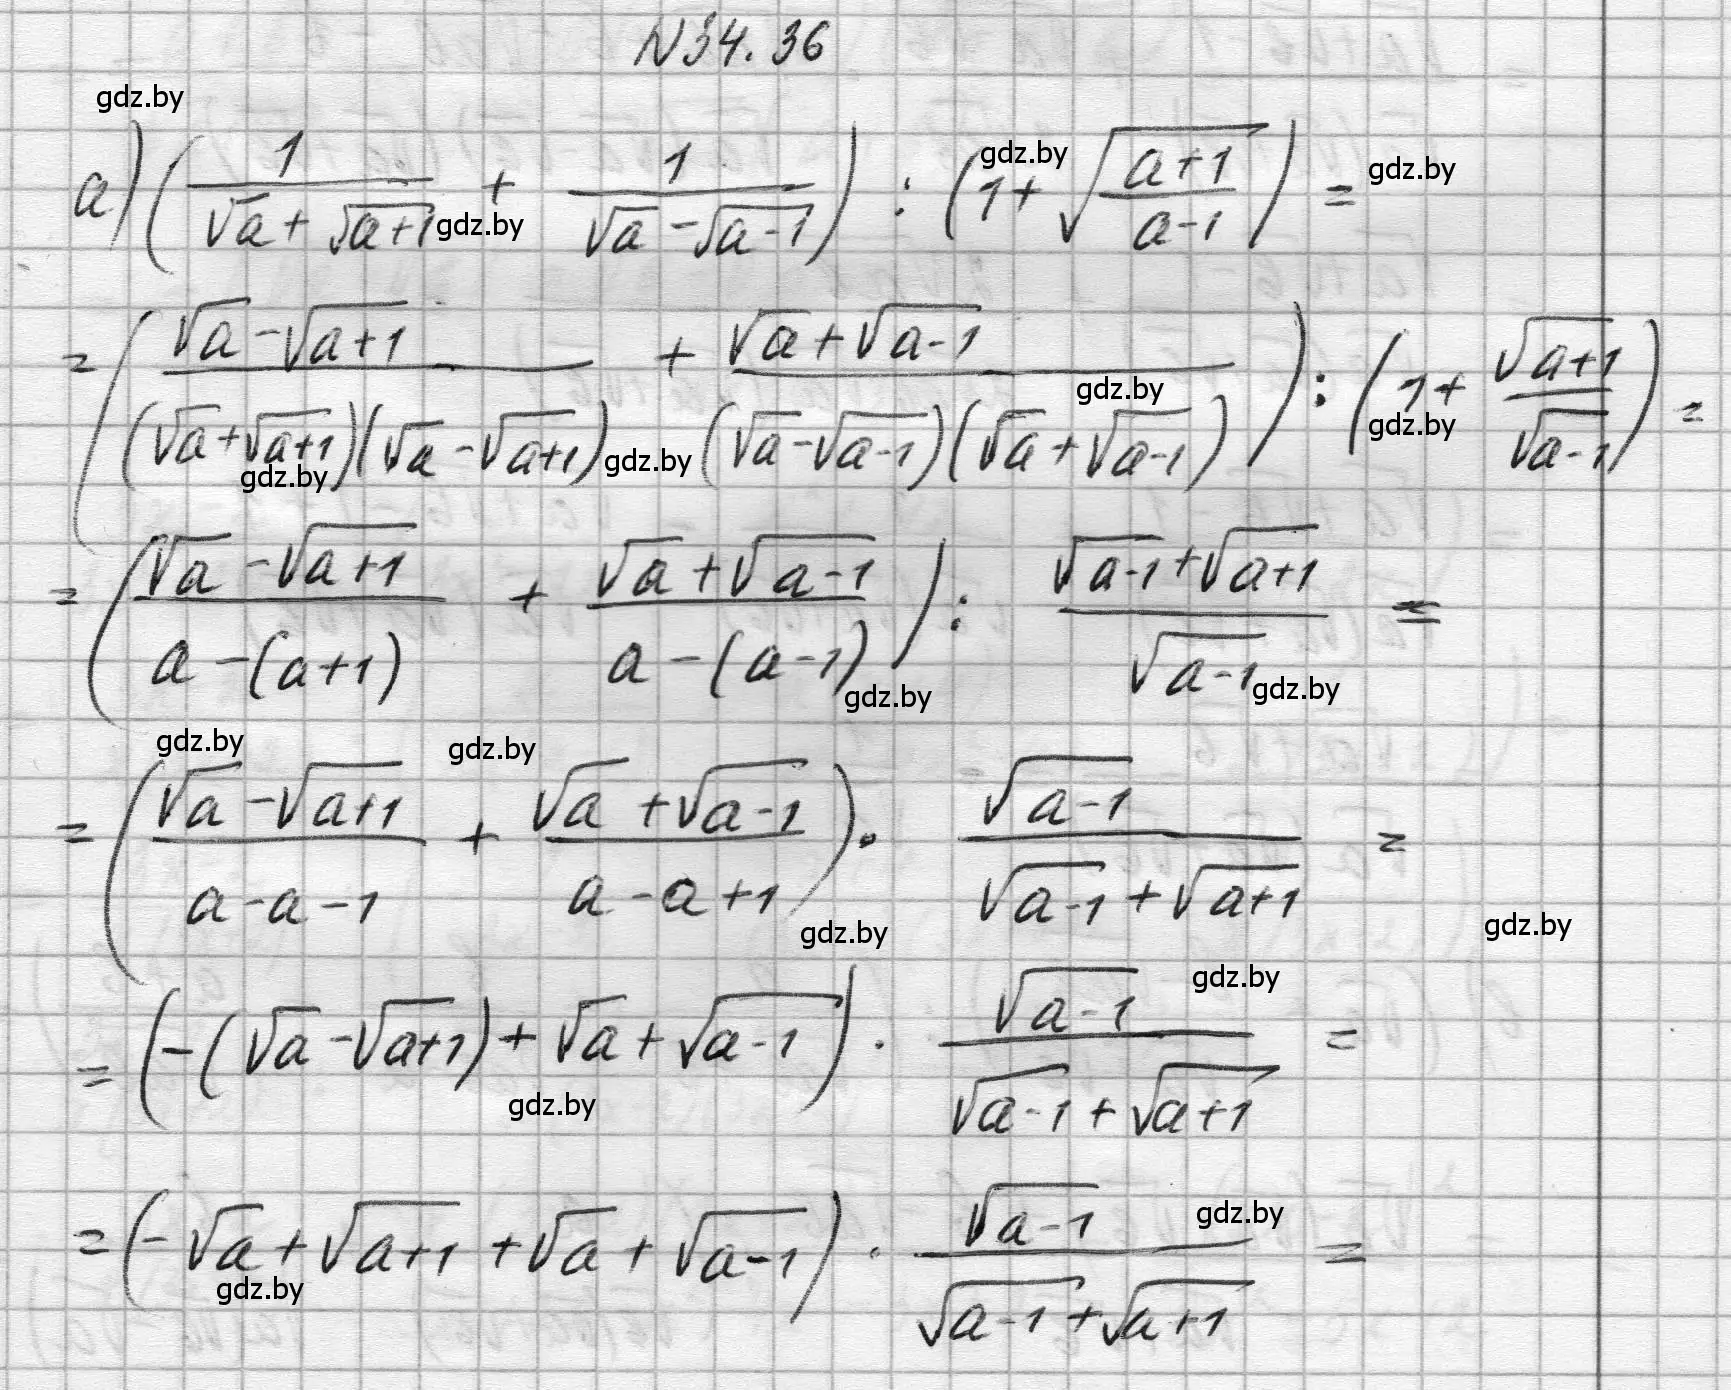 N34.36
gdz.by
а) (1/(√a + √(a+1)) + 1/(√a - √(a-1))) : (1 + √((a+1)/(a-1))) =
gdz.by gdz.by gdz.by
= ((√a - √(a+1))/((√a + √(a+1))(√a - √(a+1))) + (√a + √(a-1))/((√a - √(a-1))(√a + √(a-1)))) : (1 + √(a+1)/√(a-1)) =
gdz.by gdz.by gdz.by gdz.by
= ((√a - √(a+1))/(a - (a+1)) + (√a + √(a-1))/(a - (a-1))) : (√(a-1) + √(a+1))/√(a-1) =
gdz.by gdz.by
gdz.by gdz.by
= ((√a - √(a+1))/(a - a - 1) + (√a + √(a-1))/(a - a + 1)) · √(a-1)/(√(a-1) + √(a+1)) =
gdz.by gdz.by
gdz.by
= (-(√a - √(a+1)) + √a + √(a-1)) · √(a-1)/(√(a-1) + √(a+1)) =
gdz.by
= (-√a + √(a+1) + √a + √(a-1)) · √(a-1)/(√(a-1) + √(a+1)) =
gdz.by gdz.by